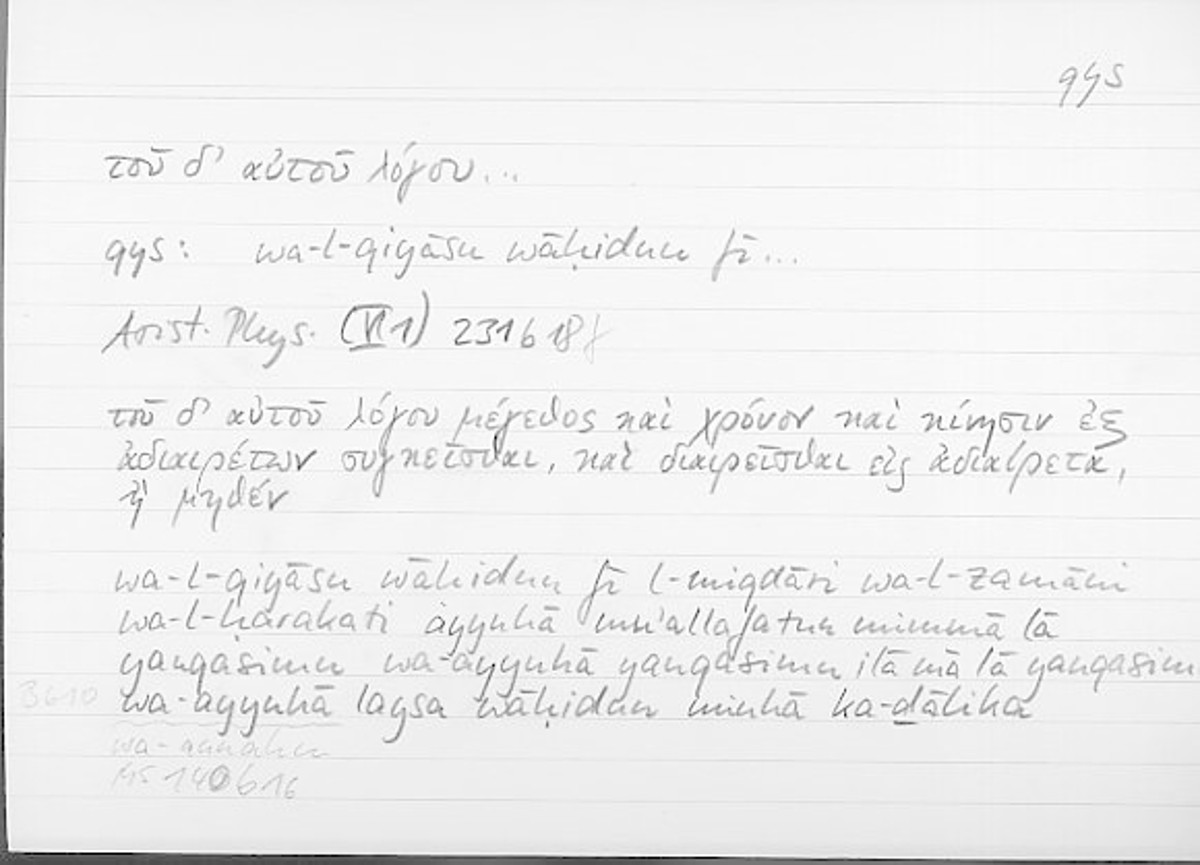 qys
τοῦ δ' αὐτοῦ λόγου...
qys: wa-l-qiyāsu wāḥidun fī...
Arist. Phys. (VI 1) 231 b 18 f
τοῦ δ' αὐτοῦ λόγου μέγεθος καὶ χρόνον καὶ κίνησιν ἐξ
ἀδιαιρέτων συγκεῖσθαι, καὶ διαιρεῖσθαι εἰς ἀδιαίρετα,
ἢ μηθέν
wa-l-qiyāsu wāḥidun fī l-miqdāri wa-l-zamāni
wa-l-ḥarakati ayyuhā mu'allafatun mimmā lā
yanqasimu wa-ayyuhā yanqasimu ilā mā lā yanqasimu
wa-ayyuhā laysa wāḥidun minhā ka-ḏālika
wa-annahu
MS 140 b 16